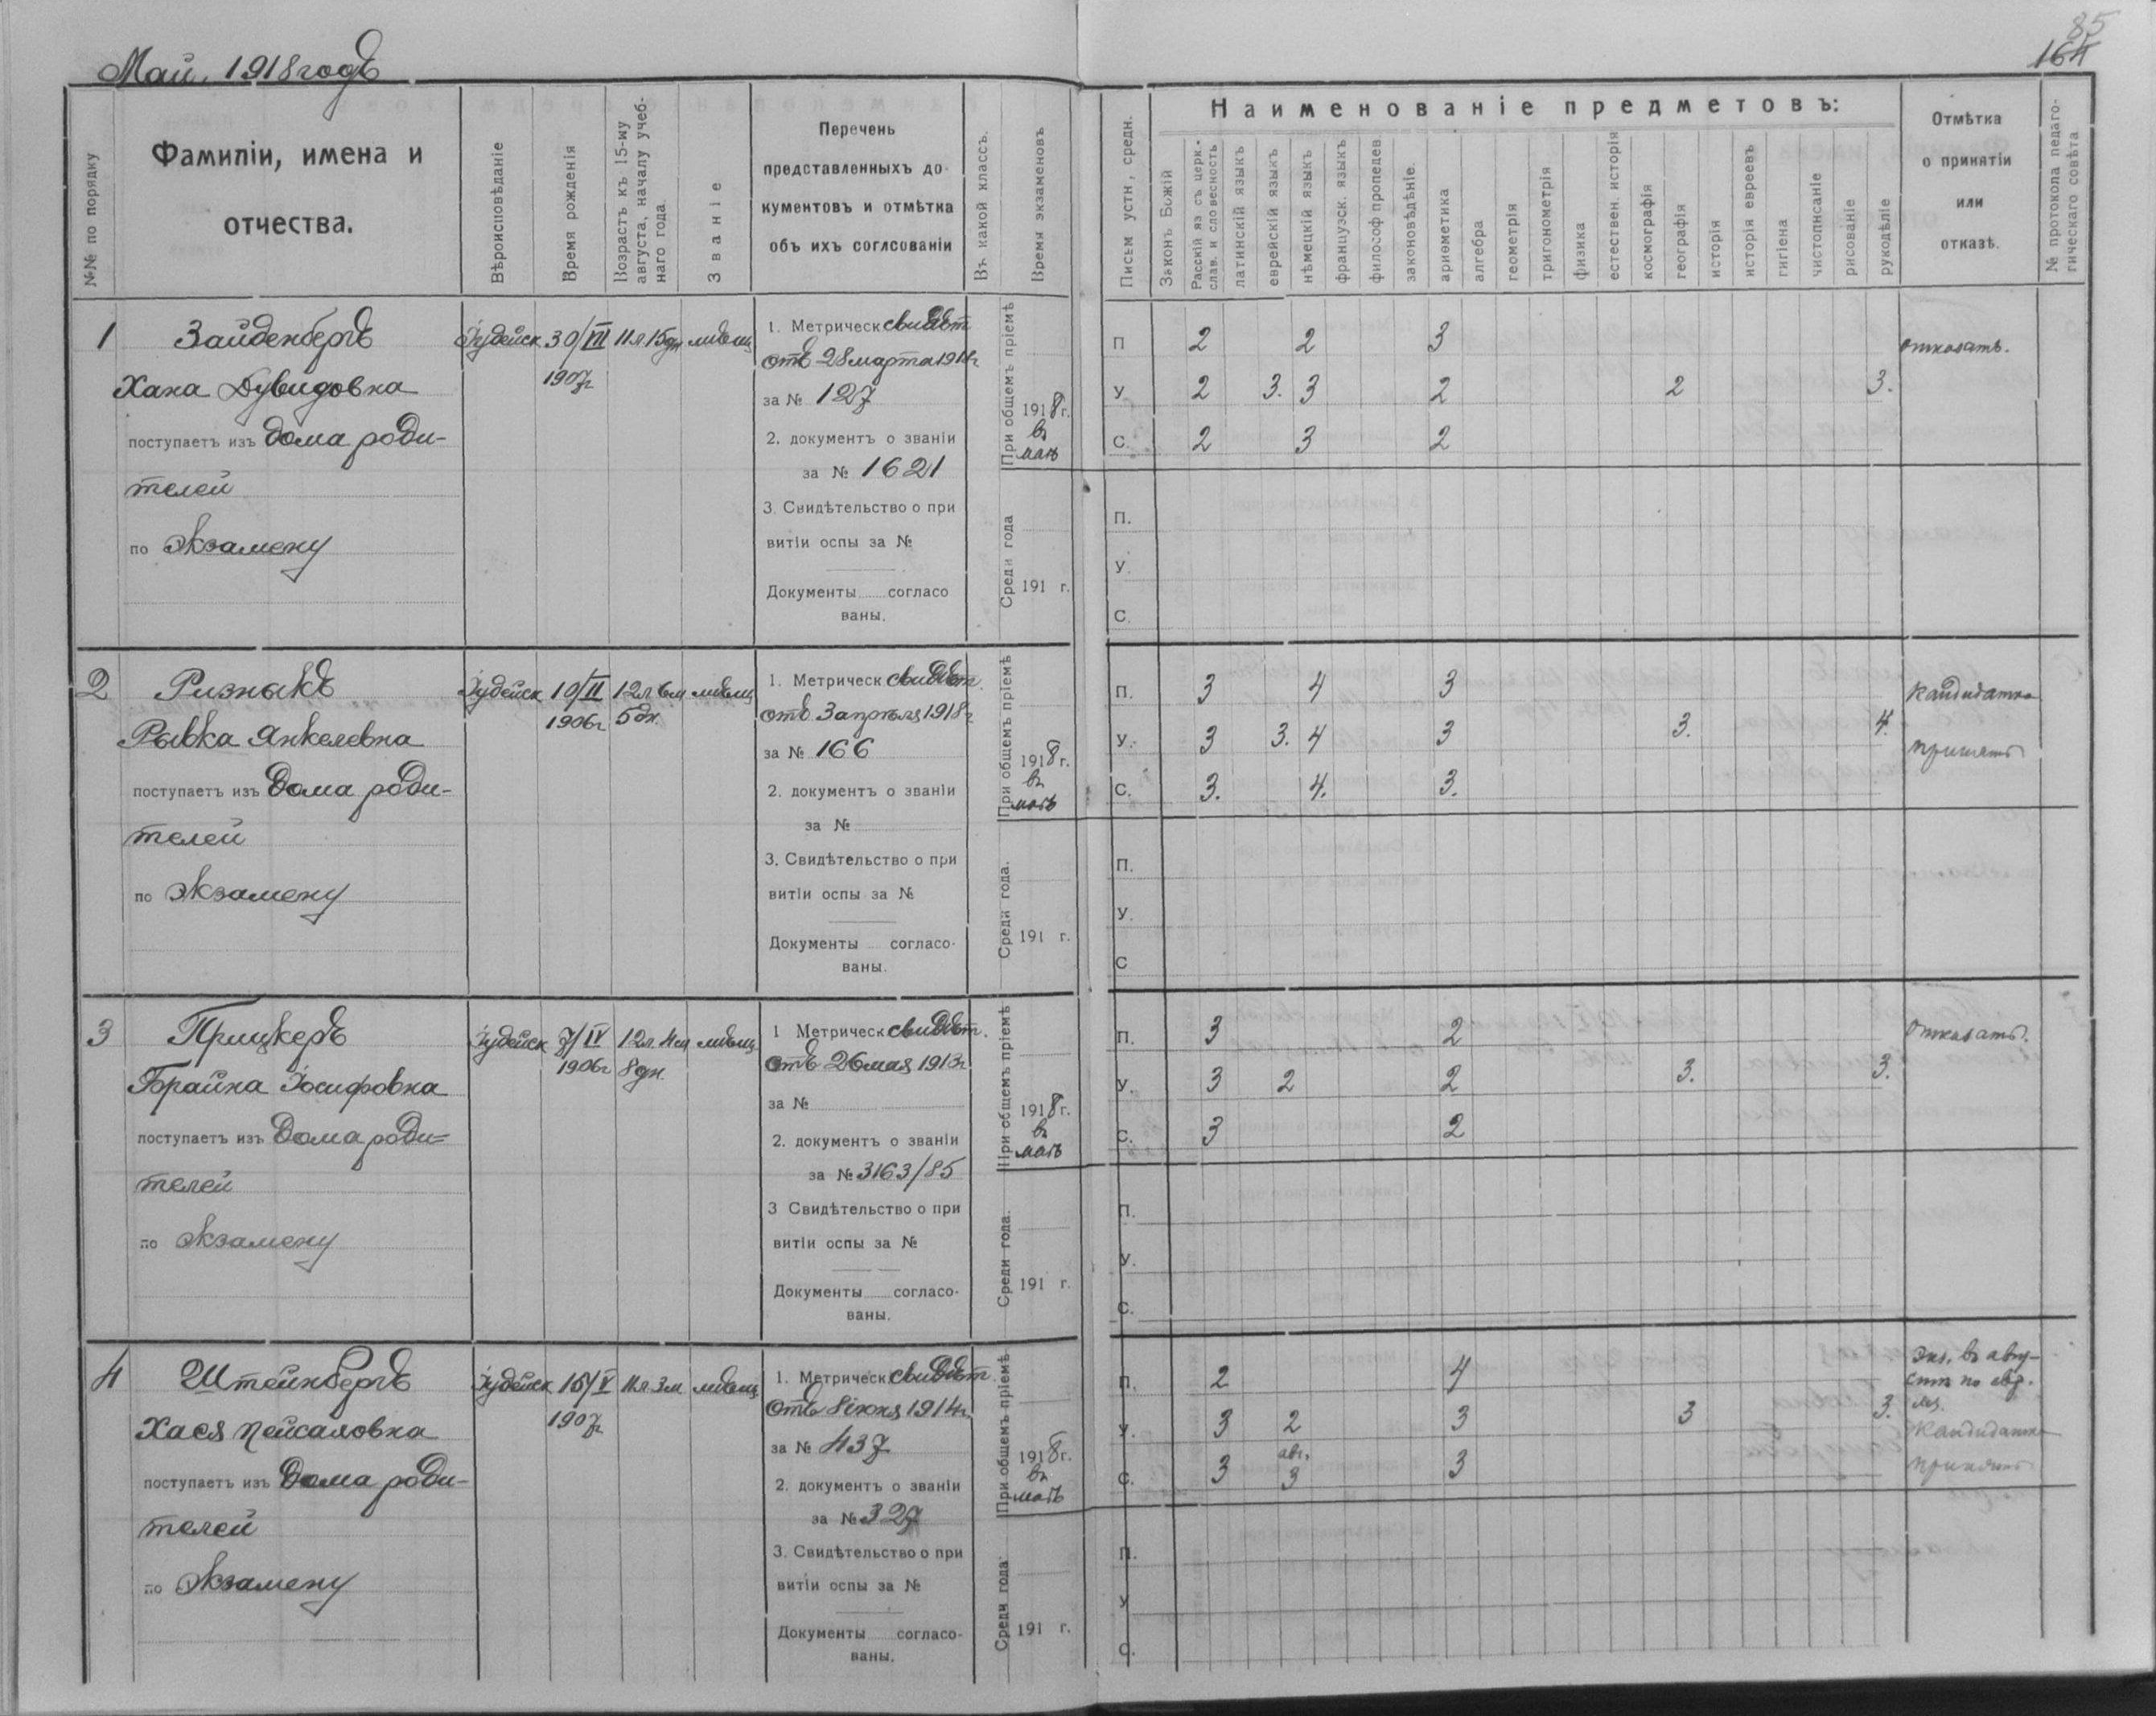 85
164
Май, 1918 годъ
№№ по порядку
Фамиліи, имена и
отчества.
Вѣроисповѣданіе
Время рожденія
Возрастъ къ 15-му
августа, началу учеб-
наго года.
Званіе
Перечень
представленныхъ до-
кументовъ и отмѣтка
объ ихъ согласованіи
Въ какой классъ.
Время экзаменовъ
Письм устн, средн.
Наименованіе предметовъ:
Законъ Божій
Русскій яз съ церк.-
слав. и словесность
латинскій языкъ
еврейскій языкъ
нѣмецкій языкъ
французск. языкъ
философ пропедев.
законовѣдѣніе.
ариѳметика
алгебра
геометрія
тригонометрія
физика
естествен. исторія
космографія
географія
исторія
исторія евреевъ
гигіена
чистописаніе
рисованіе
рукодѣліе
Отмѣтка
о принятіи
или
отказѣ.
№ протокола педаго-
гическаго совѣта
1
Зайденбергъ
Хана Дувидовна
поступаетъ изъ дома роди-
телей
по экзамену
Іудейск
30/VII
1907г
11л 15дн
мѣщ
1. Метрическ свидѣт
отъ 28 марта 1918г
за № 127
2. документъ о званіи
за № 1621
3. Свидѣтельство о при
витіи оспы за №
Документы согласо
ваны.
При общемъ пріемѣ
1918 г.
въ
маѣ
Среди года
191 г.
П 2 2 3
У 2 3. 3 2 2 3.
С. 2 3 2
отказать.
П.
У.
С.
2
Ризныкъ
Рывка Янкелевна
поступаетъ изъ дома роди-
телей
по экзамену
Іудейск
10/II
1906г
12л 6м
5дн.
мѣщ
1. Метрическ свидѣт.
отъ 3 апрѣля 1918г
за № 166
2. документъ о званіи
за №
3. Свидѣтельство о при
витіи оспы за №
Документы согласо-
ваны.
При общемъ пріемѣ
1918 г.
въ
маѣ
Среди года.
191 г.
П. 3 4 3
У. 3 3. 4 3 3. 4.
С. 3. 4. 3.
Кандидатка
принять
П.
У.
С
3
Прицкеръ
Брайна Іосифовна
поступаетъ изъ дома роди=
телей
по экзамену
Іудейск
7/IV
1906г
12л. 4м
8дн.
мѣщ
1 Метрическ свидѣт.
отъ 26 мая 1913г
за №
2. документъ о званіи
за № 3163/85
3 Свидѣтельство о при
витіи оспы за №
Документы согласо-
ваны.
При общемъ пріемѣ
1918 г.
въ
маѣ
Среди года.
191 г.
П. 3 2
У. 3 2 2 3. 3.
С. 3 2
Отказать.
П.
У.
С.
4
Штейнбергъ
Хася Пейсаховна
поступаетъ изъ дома роди-
телей
по экзамену
Іудейск
15/V
1907г
11л 3м
мѣщ
1. Метрическ свидѣт.
отъ 8 іюня 1914г.
за № 437
2. документъ о званіи
за № 327
3. Свидѣтельство о при
витіи оспы за №
Документы согласо-
ваны.
При общемъ пріемѣ
1918 г.
въ
маѣ
Среди года
191 г.
П. 2 4
У. 3 2 3 3 3.
авг.
С. 3 3 3
Экз. въ авгу-
стѣ по евр.
яз.
Кандидатка
принять
П.
У
С.